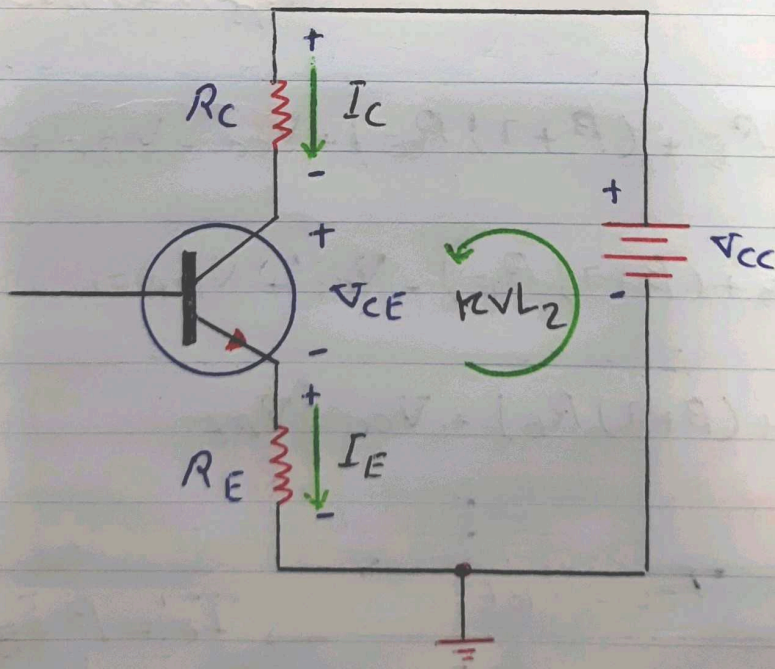 +
R_C I_C
-
+
+
V_CE
KVL_2
V_CC
-
-
+
R_E I_E
-